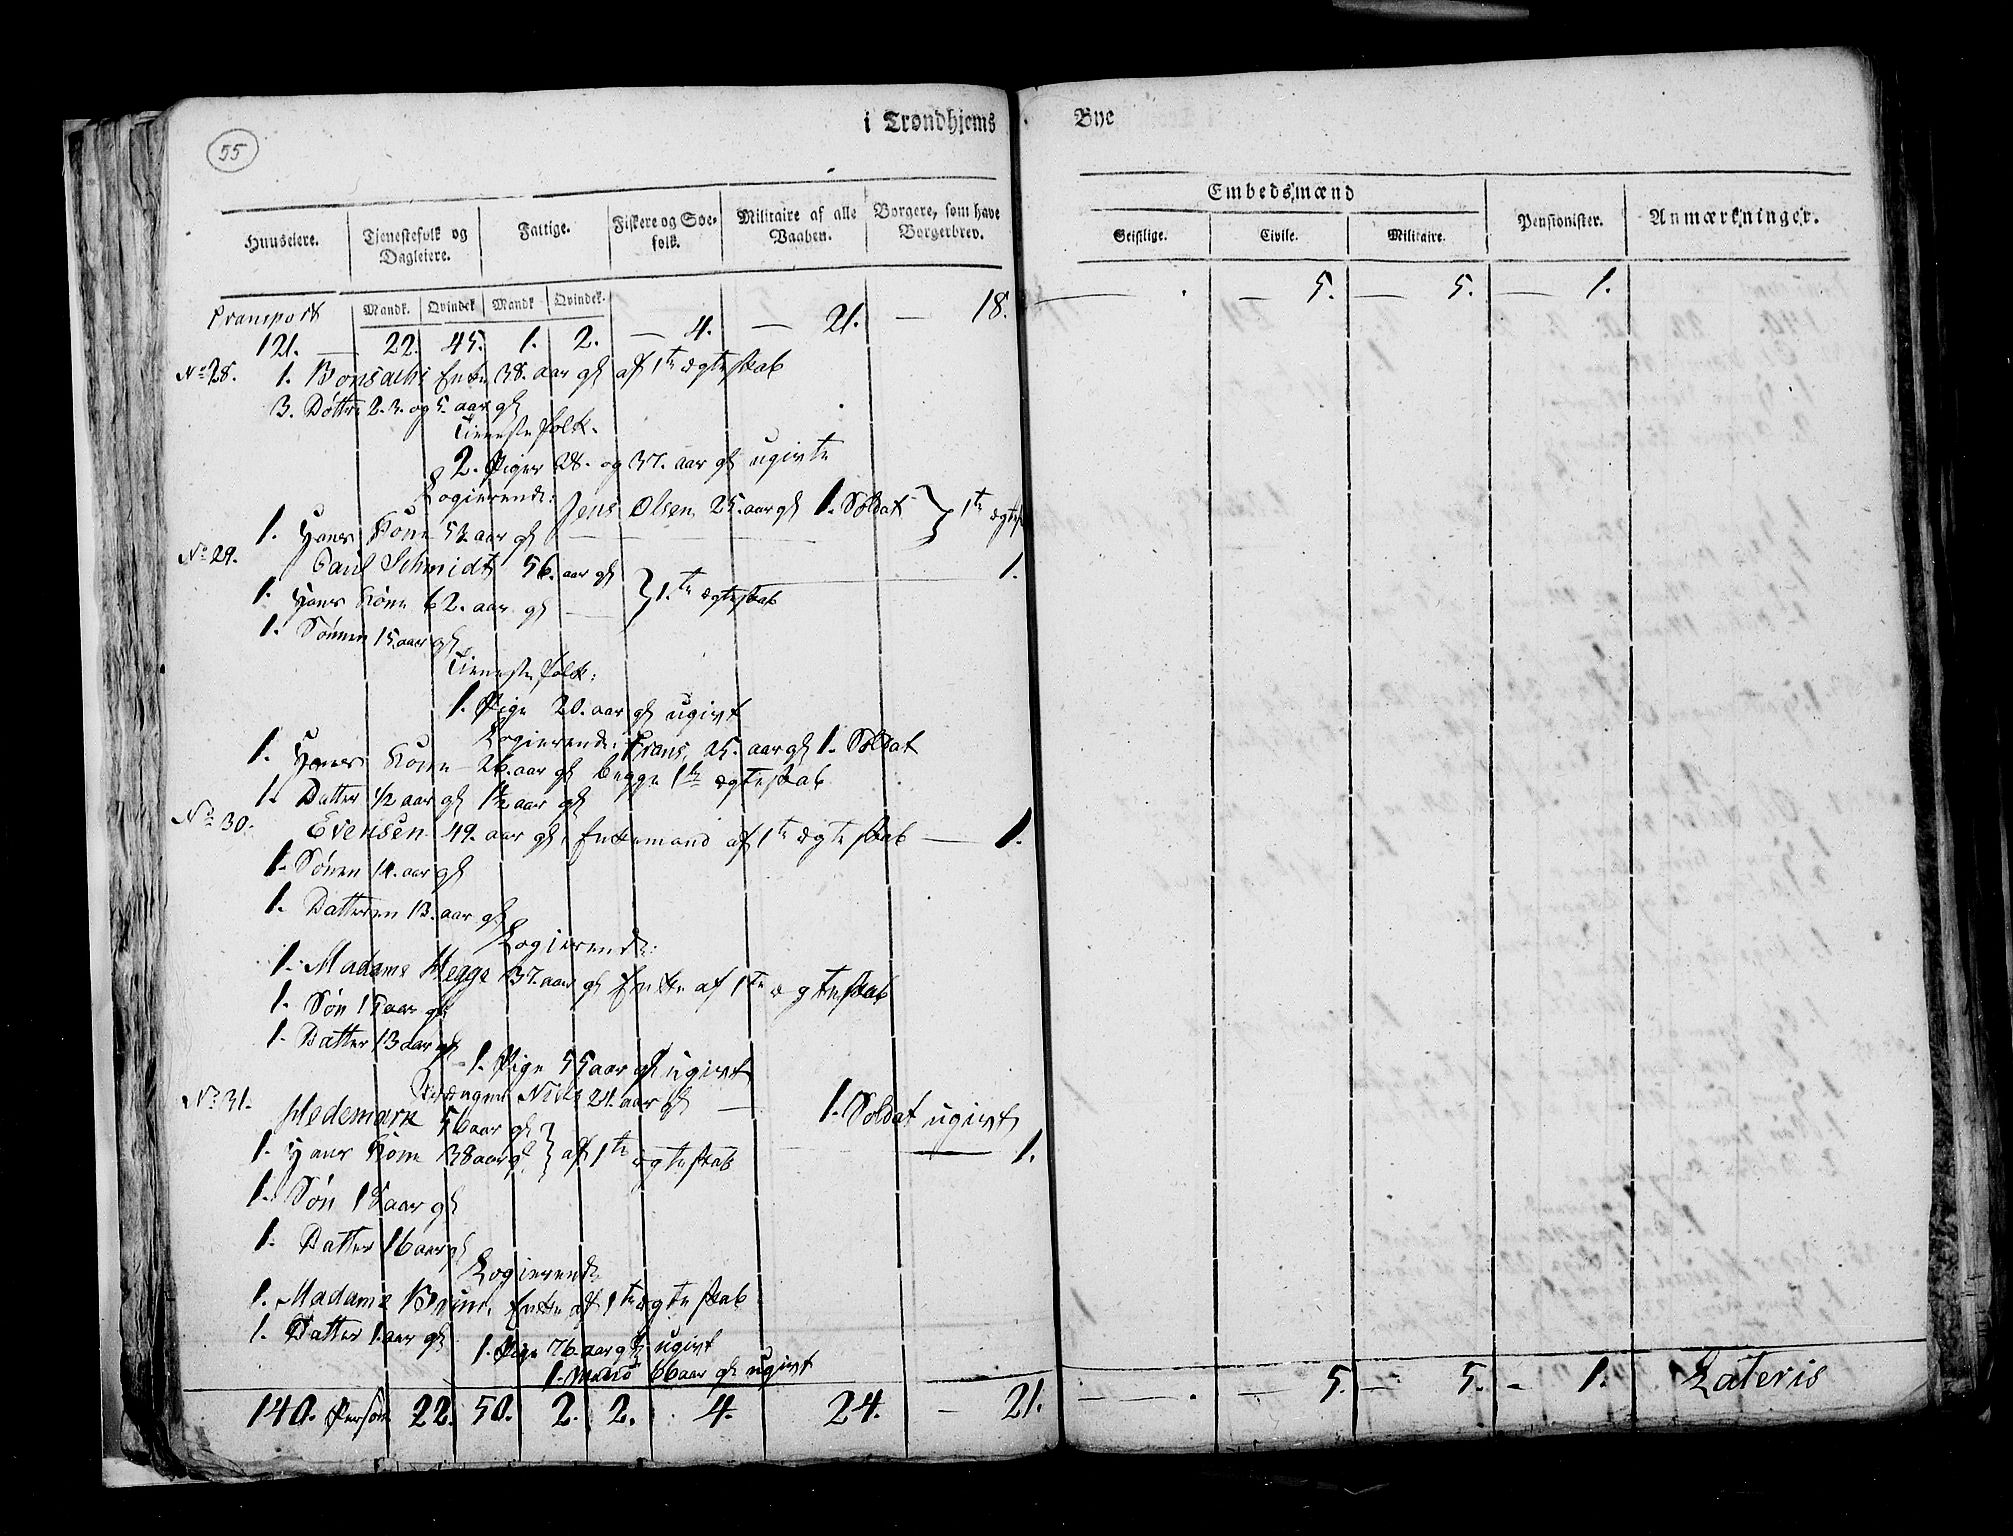 55
i Trondhjems Bye
Embedsmænd
Huuseiere. Tjenestefolk og Dagleiere. Fattige. Fiskere og Søefolk. Militaire af alle Vaaben. Borgere, som have Borgerbrev. Geistlige. Civile. Militaire. Pensionister. Anmærkninger.
Mandk. Qvindek. Mandk. Qvindek.
Transport
121. — 22. 45. 1. 2. — 4. — 21. — 18. — . — 5. — 5. — 1.
No 28. 1. Bonsachs Enke 38. aar gl af 1te ægteskab
3. Døttre 2. 3. og 5. aar gl
Tieneste folk.
2. Piger 28. og 37. aar gl ugivte
Logierende: Jens Olsen 25. aar gl 1. Soldat
1. Hans Kone 52 aar gl — } 1te
No 29. Paul Schmidt 56. aar gl — 1.
1. Hans Kone 62. aar gl — } 1te ægteskab
1. Sønnen 15 aar gl
Tieneste folk:
1. Pige 20. aar gl ugivt
Logierende: Frans, 25. aar gl 1. Soldat
1. Hans Kone 26. aar gl begge 1te ægteskab
1. Datter 1/2 aar gl 1 1/2 aar gl
No 30. Evensen 49. aar gl, Enkemand af 1te ægteskab — 1.
1. Sønen 14. aar gl
1. Datteren 13. aar gl
Logierende:
1. Madame Hegge 37. aar gl Enke af 1te ægteskab
1. Søn 15 aar gl
1. Datter 13 aar gl
1. Pige 55 aar gl ugivt
Niels 21. aar gl — 1. Soldat ugivt
No 31. Hedemark 56 aar gl
1. Hans Kone 38 aar gl } af 1te ægteskab — 1.
1. Søn 18 aar gl
1. Datter 16 aar gl
Logierende
1. Madame Bruun, Enke af 1te ægteskab
1. Datter 1. aar gl
1. Pige 76. aar gl ugivt
1. Mand 66 aar gl ugivt
140. Person 22. 50. 2. 2. 4. 24. — 21. — . — 5. — 5. - 1. Lateris